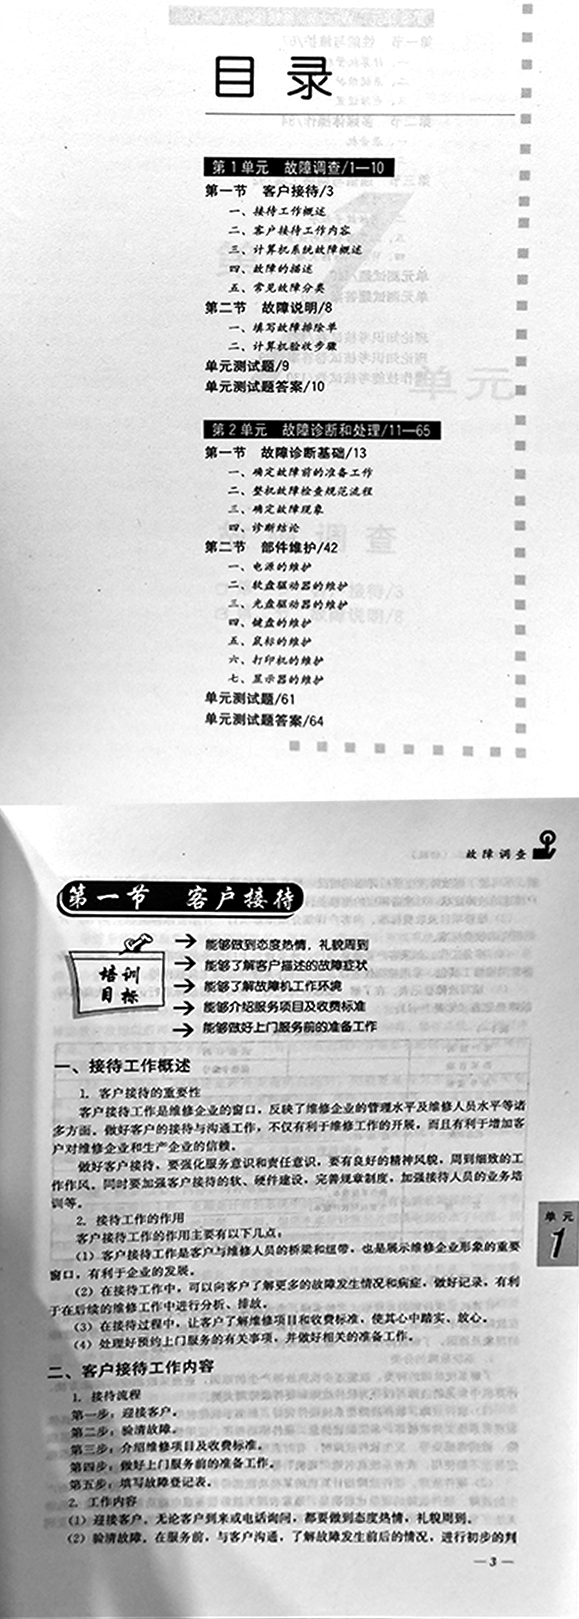 目录
第1单元 故障调查/1—10
第一节 客户接待/3
一、接待工作概述
二、客户接待工作内容
三、计算机系统故障概述
四、故障的描述
五、常见故障分类
第二节 故障说明/8
一、填写故障排除单
二、计算机验收步骤
单元测试题/9
单元测试题答案/10
第2单元 故障诊断和处理/11—65
第一节 故障诊断基础/13
一、确定故障前的准备工作
二、整机故障检查规范流程
三、确定故障现象
四、诊断结论
第二节 部件维护/42
一、电源的维护
二、软盘驱动器的维护
三、光盘驱动器的维护
四、键盘的维护
五、鼠标的维护
六、打印机的维护
七、显示器的维护
单元测试题/61
单元测试题答案/64
故障调查
第一节 客户接待
培训
目标
→ 能够做到态度热情，礼貌周到
→ 能够了解客户描述的故障症状
→ 能够了解故障机工作环境
→ 能够介绍服务项目及收费标准
→ 能够做好上门服务前的准备工作
一、接待工作概述
1. 客户接待的重要性
客户接待工作是维修企业的窗口，反映了维修企业的管理水平及维修人员水平等诸
多方面。做好客户的接待与沟通工作，不仅有利于维修工作的开展，而且有利于增加客
户对维修企业和生产企业的信赖。
做好客户接待，要强化服务意识和责任意识，要有良好的精神风貌，周到细致的工
作作风。同时要加强客户接待的软、硬件建设，完善规章制度，加强接待人员的业务培
训等。
2. 接待工作的作用
客户接待工作的作用主要有以下几点：
（1）客户接待工作是客户与维修人员的桥梁和纽带，也是展示维修企业形象的重要
窗口，有利于企业的发展。
（2）在接待工作中，可以向客户了解更多的故障发生情况和病症，做好记录，有利
于在后续的维修工作中进行分析、排故。
（3）在接待过程中，让客户了解维修项目和收费标准，使其心中踏实、放心。
（4）处理好预约上门服务的有关事项，并做好相关的准备工作。
单元
1
二、客户接待工作内容
1. 接待流程
第一步：迎接客户。
第二步：验清故障。
第三步：介绍维修项目及收费标准。
第四步：做好上门服务前的准备工作。
第五步：填写故障登记表。
2. 工作内容
（1）迎接客户。无论客户到来或电话询问，都要做到态度热情，礼貌周到。
（2）验清故障。在服务前，与客户沟通，了解故障发生前后的情况，进行初步的判
—3—